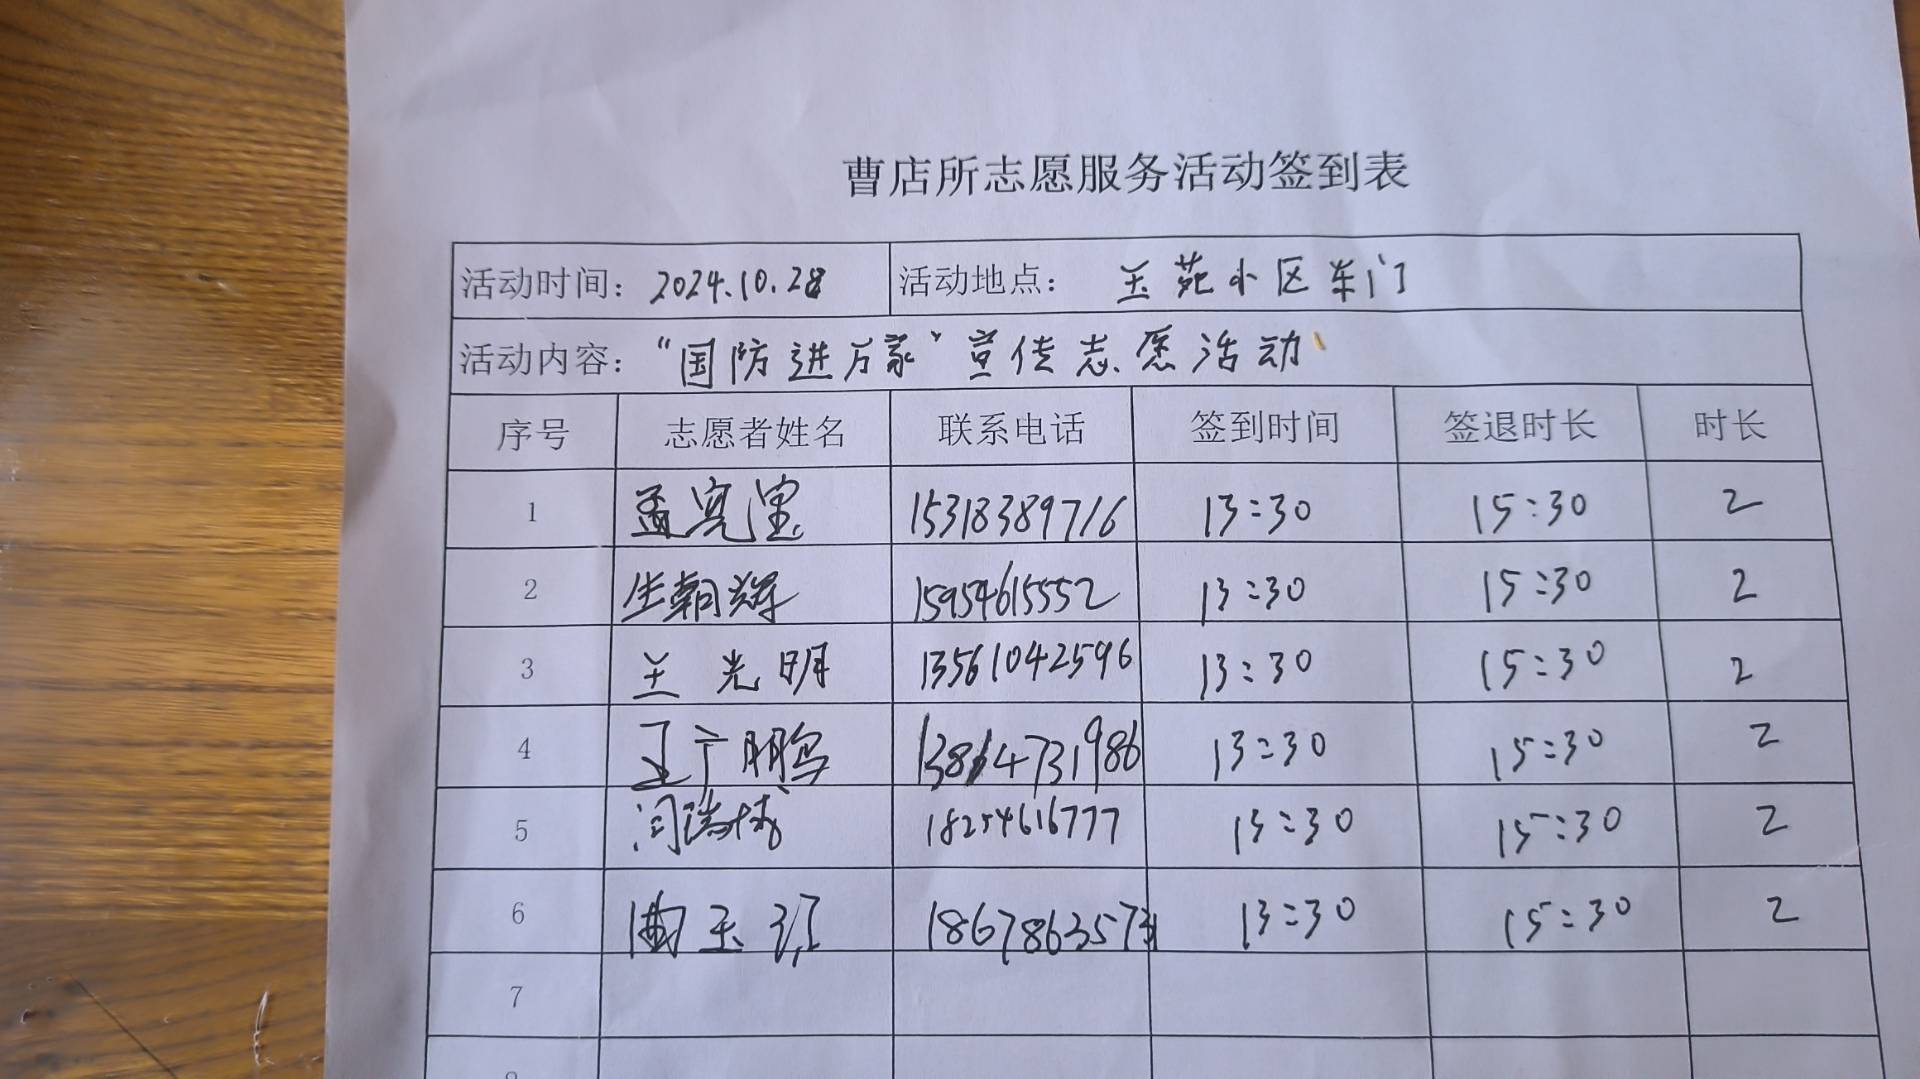 曹店所志愿服务活动签到表
活动时间: 2024.10.28 活动地点: 玉苑小区东门
活动内容: “国防进万家”宣传志愿活动
序号 志愿者姓名 联系电话 签到时间 签退时长 时长
1 孟宪宝 15318389716 13:30 15:30 2
2 生朝辉 15954615552 13:30 15:30 2
3 王光明 13561042596 13:30 15:30 2
4 王广鹏 13864731986 13:30 15:30 2
5 闫瑞 18254616777 13:30 15:30 2
6 曲玉江 186786357 13:30 15:30 2
7